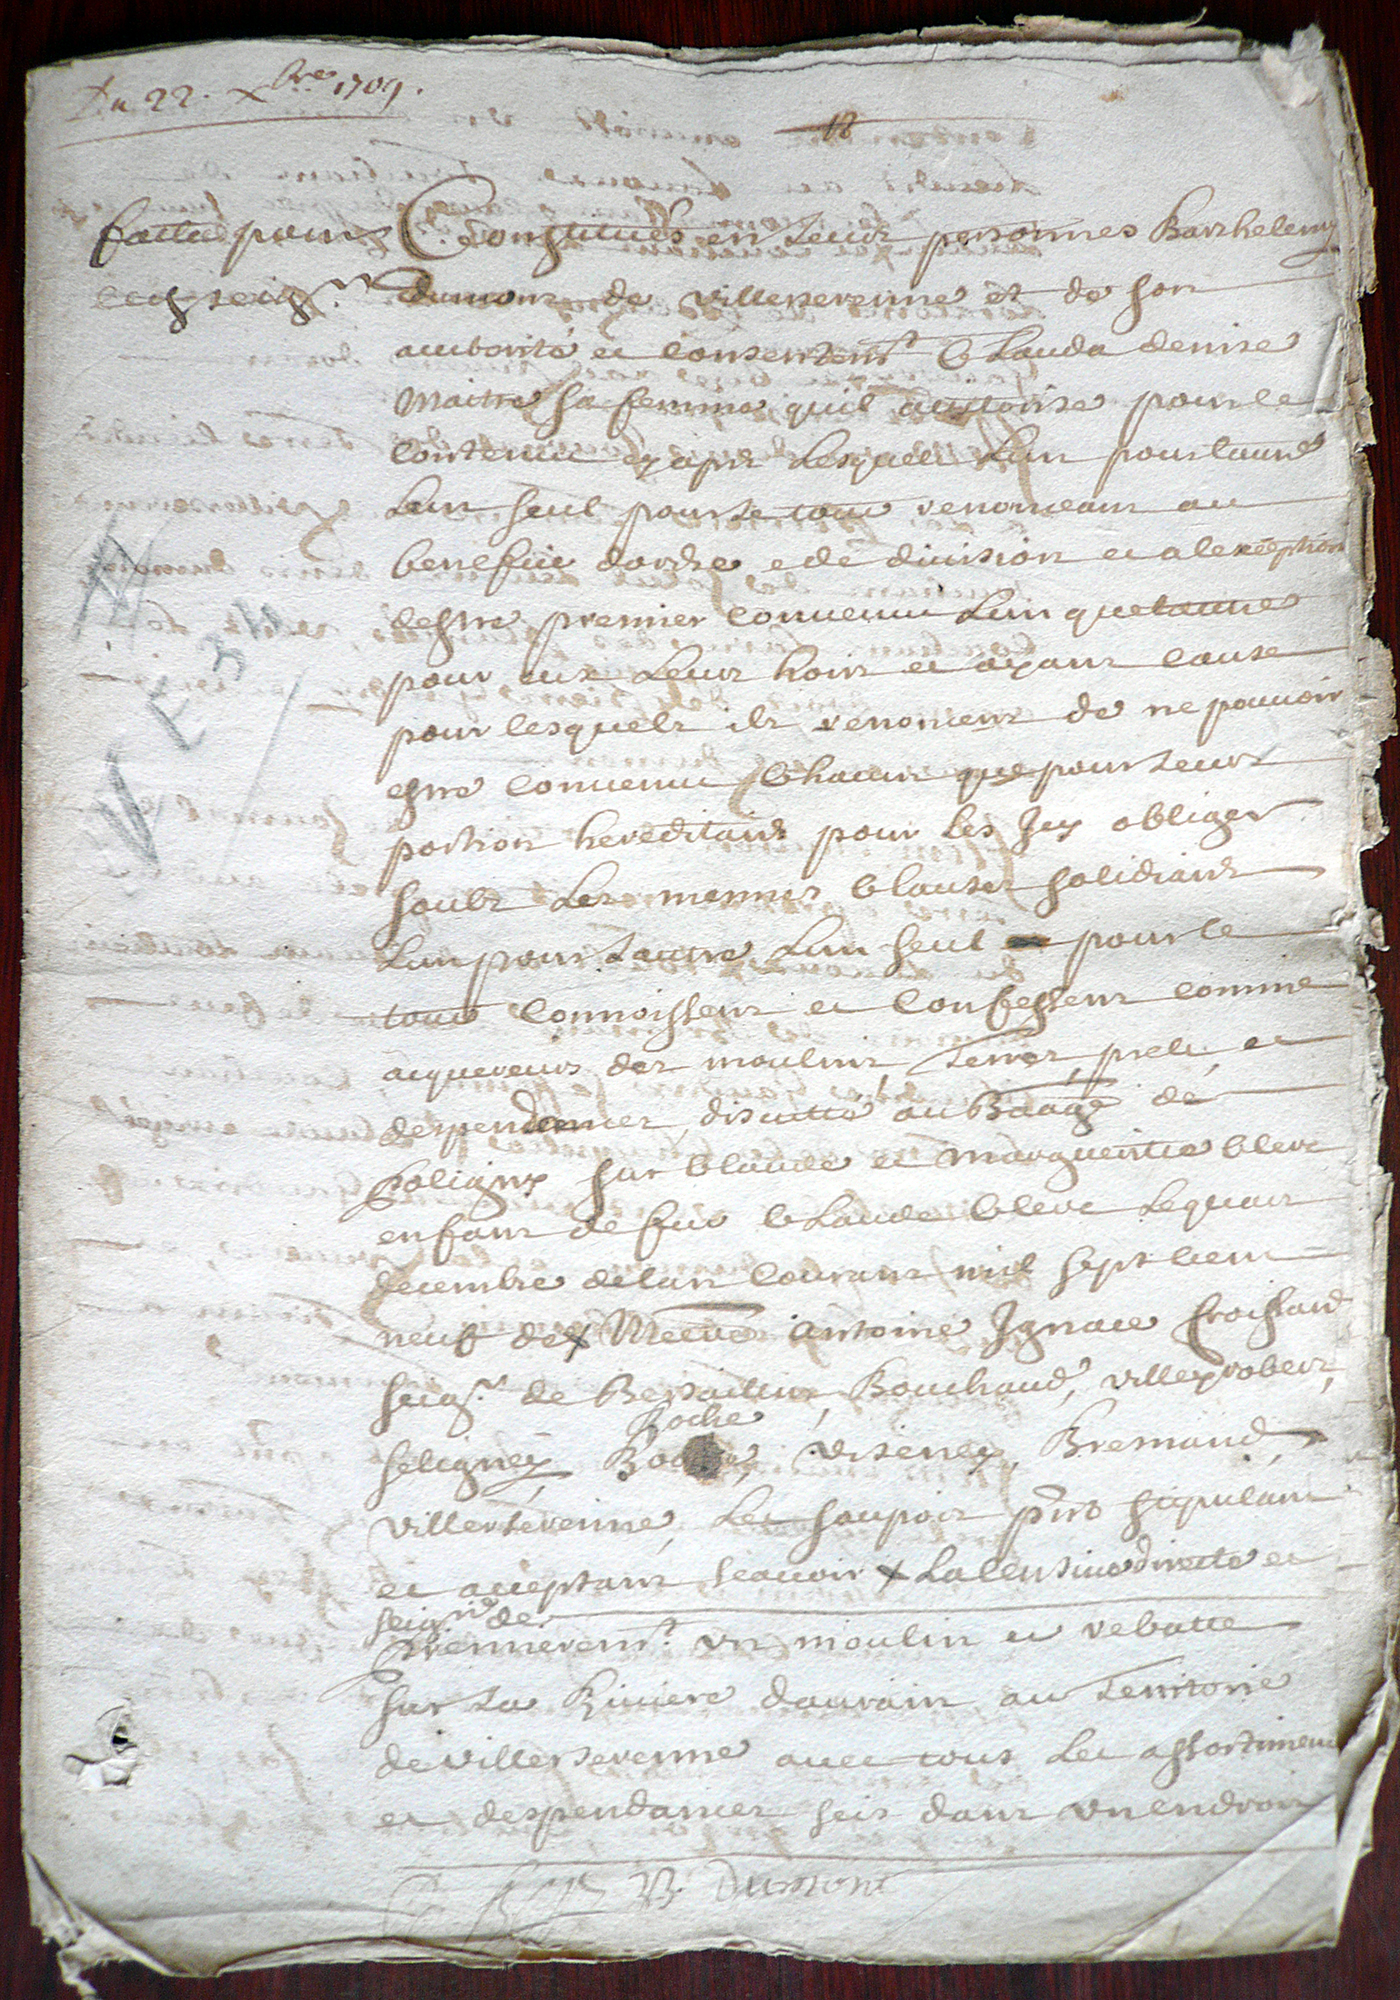 Du 22. Xbre 1709.
18
faitte pour
led seigr
Constitués en leurs personnes Barthelemy
dumont de villerserenne et de son
authorité et Consentemt Clauda denise
Maitre sa femme quil authorise pour le
Contenu cy apres Lesquels Lun pour lautre
Lun seul pour le tout renonceans au
benefice dordre et de division et a lexception
destre premier Convenu Lun que lautre
pour eux Leurs hoirs et ayans Cause
pour lesquels ils renoncent de ne pouvoir
estre Convenu Chacun que pour leurs
portion hereditaire pour les Icy obliger
soubs Les mesmes Clauses solidaires
Lun pour Lautre Lun seul pour le
tout Connoissent et Confessent comme
acquereurs des moulins, Terres, prels, et
despendances discuttés au Baage de
poligny sur Claude et Marguerite Clerc
enfans de feu Claude Clerc Le quatre
decembre de lan Courant mil sept Cent
neuf de Messre Antoine Ignace Froissard
seigr de Bersaillin, Bouchaud, villey robert,
Roche
seligney, viseney, Bresmand,
villerserenne, Le
et acceptant scavoir Lalensive directe et
seigrie de
premieremt un moulin et rebatte
sur La Riviere dauvain au Territoire
de villerserenne avec tous Les assortimens
et despendances seis dans un endroit
B. Dumont